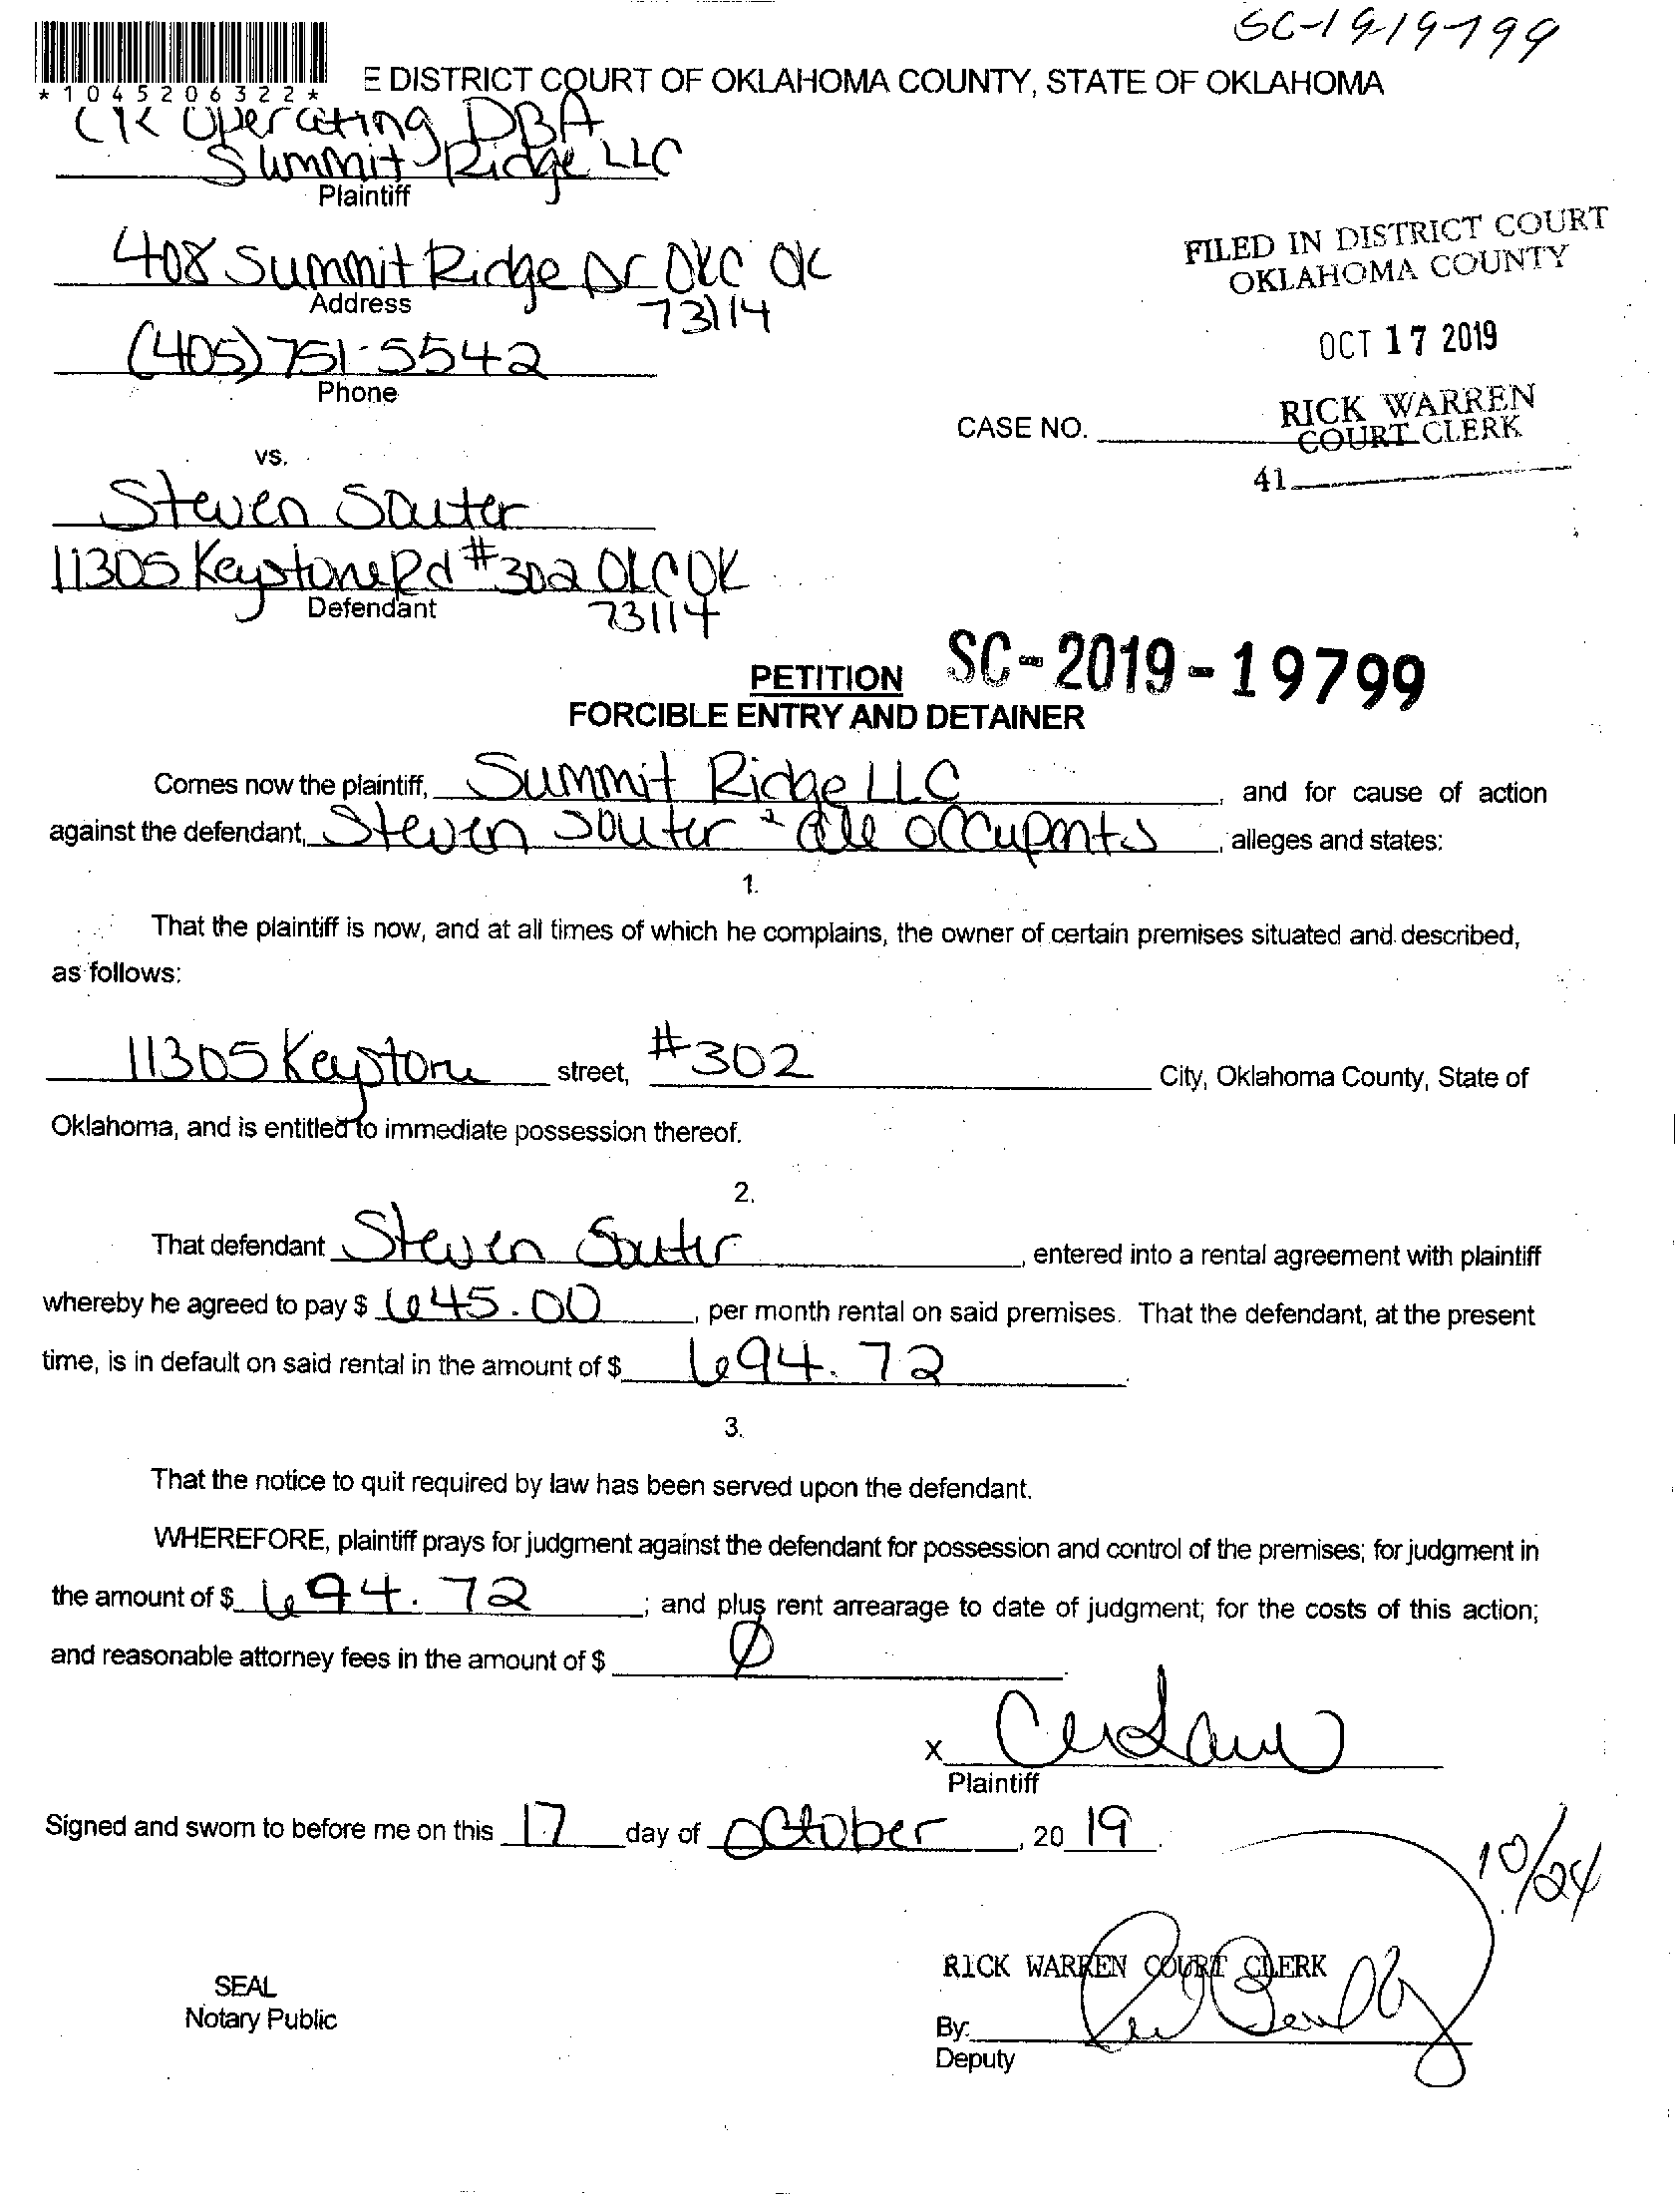 SC-1919799
*1045206322*
E DISTRICT COURT OF OKLAHOMA COUNTY, STATE OF OKLAHOMA
Operating DBA
Summit Ridge LLC
Plaintiff
408 Summit Ridge Dr OKC OK
Address
73114
(405) 751-5542
Phone
FILED IN DISTRICT COURT
OKLAHOMA COUNTY
OCT 17 2019
RICK WARREN
COURT CLERK
41
CASE NO.
vs.
Steven Souter
11305 Keystone Rd #302 OKC OK
Defendant
73114
PETITION SC-2019-19799
FORCIBLE ENTRY AND DETAINER
Comes now the plaintiff, Summit Ridge LLC, and for cause of action
against the defendant, Steven Souter & all occupants, alleges and states:
1.
That the plaintiff is now, and at all times of which he complains, the owner of certain premises situated and described,
as follows:
11305 Keystone street, #302 City, Oklahoma County, State of
Oklahoma, and is entitled to immediate possession thereof.
2.
That defendant Steven Souter, entered into a rental agreement with plaintiff
whereby he agreed to pay $ 645.00, per month rental on said premises. That the defendant, at the present
time, is in default on said rental in the amount of $ 694.72.
3.
That the notice to quit required by law has been served upon the defendant.
WHEREFORE, plaintiff prays for judgment against the defendant for possession and control of the premises; for judgment in
the amount of $ 694.72; and plus rent arrearage to date of judgment; for the costs of this action;
and reasonable attorney fees in the amount of $ Ø
X
Plaintiff
Signed and sworn to before me on this 17 day of October, 20 19.
10/24
RICK WARREN COURT CLERK
SEAL
Notary Public
By:
Deputy